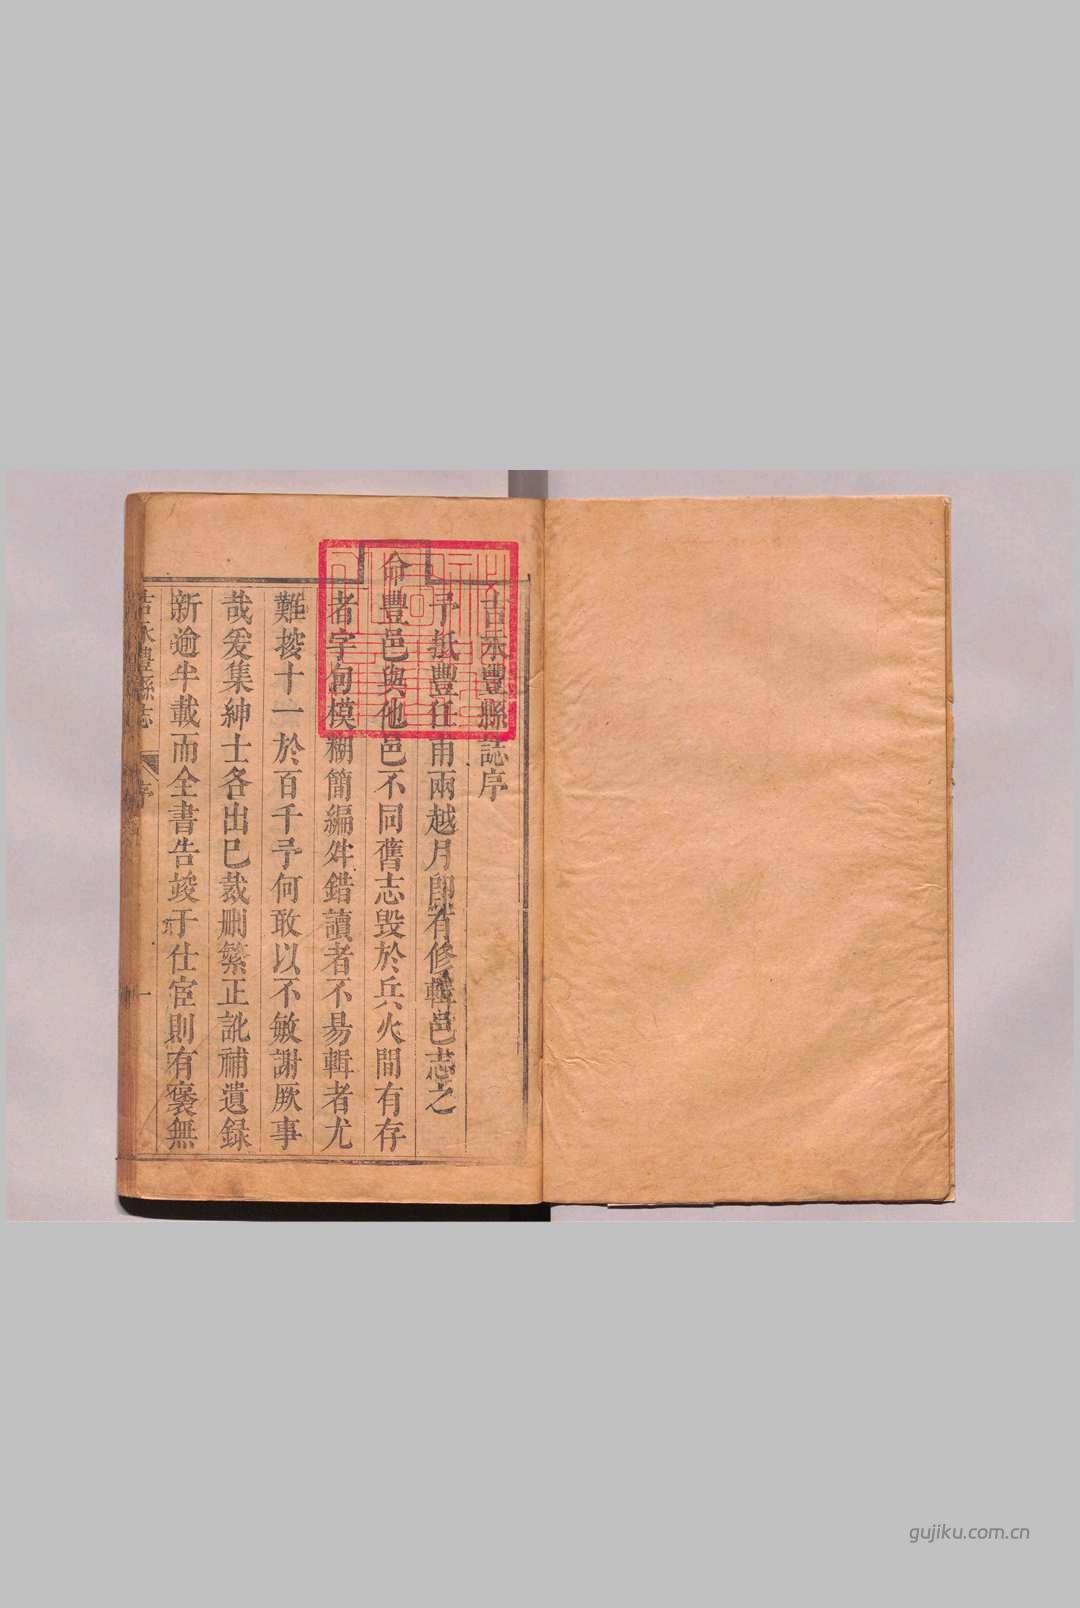 吉永豐縣誌序
予抵豐任甫兩越月即有修輯邑志之
命豐邑與他邑不同舊志毀於兵火間有存
者字句模糊簡編舛錯讀者不易輯者尤
難挍十一於百千予何敢以不敏謝厥事
哉爰集紳士各出已裁刪繁正訛補遺録
新逾半載而全書告竣于仕宦則有褒無
吉永豐縣志
序
一
gujiku.com.cn